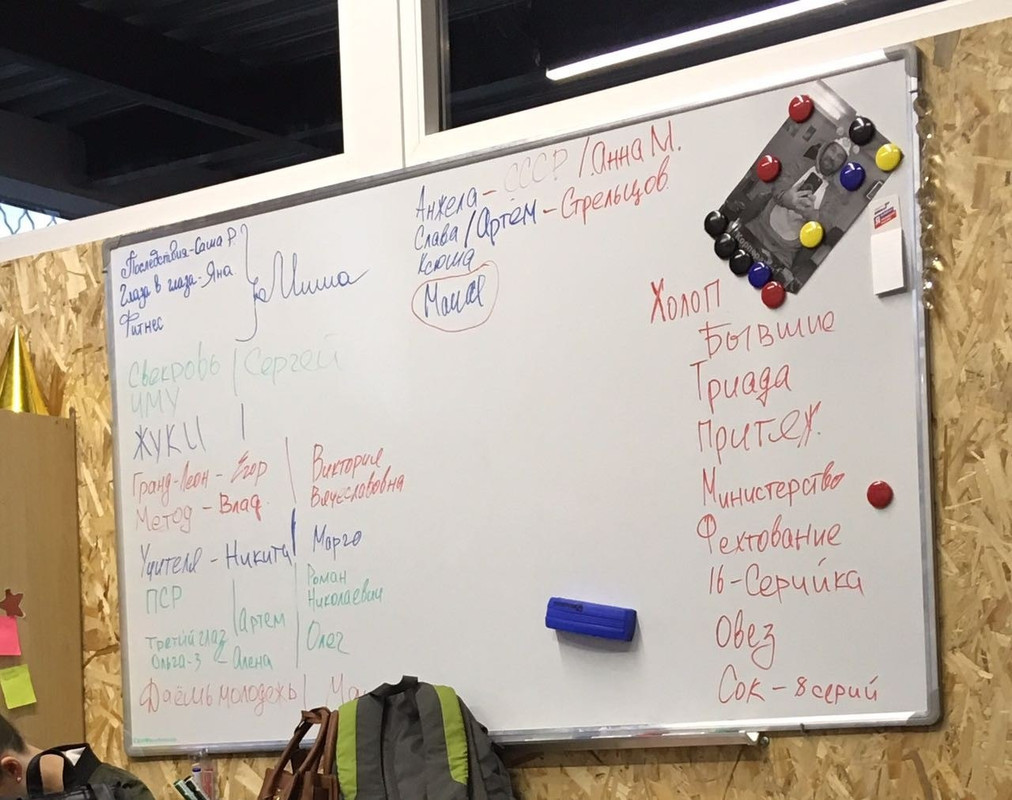 Последствия-Саша Р.
Глаза в глаза-Яна.
Фитнес
Миша
Свекровь | Сергей
ИМУ
ЖУКИ |
Гранд-Леон - Егор
Метод - Влад.
Виктория
Вячеславовна
Учителя - Никита
Марго
ПСР
Артём
Роман
Николаевич
Третий глаз
Ольга-3 - Алена
Олег
Даёшь молодежь |
Анжела - СССР / Анна М.
Слава / Артём - Стрельцов
Ксюша
Холоп
Бывшие
Триада
Притяж.
Министерство
Фехтование
16-Серийка
Овез
Сок - 8 серий